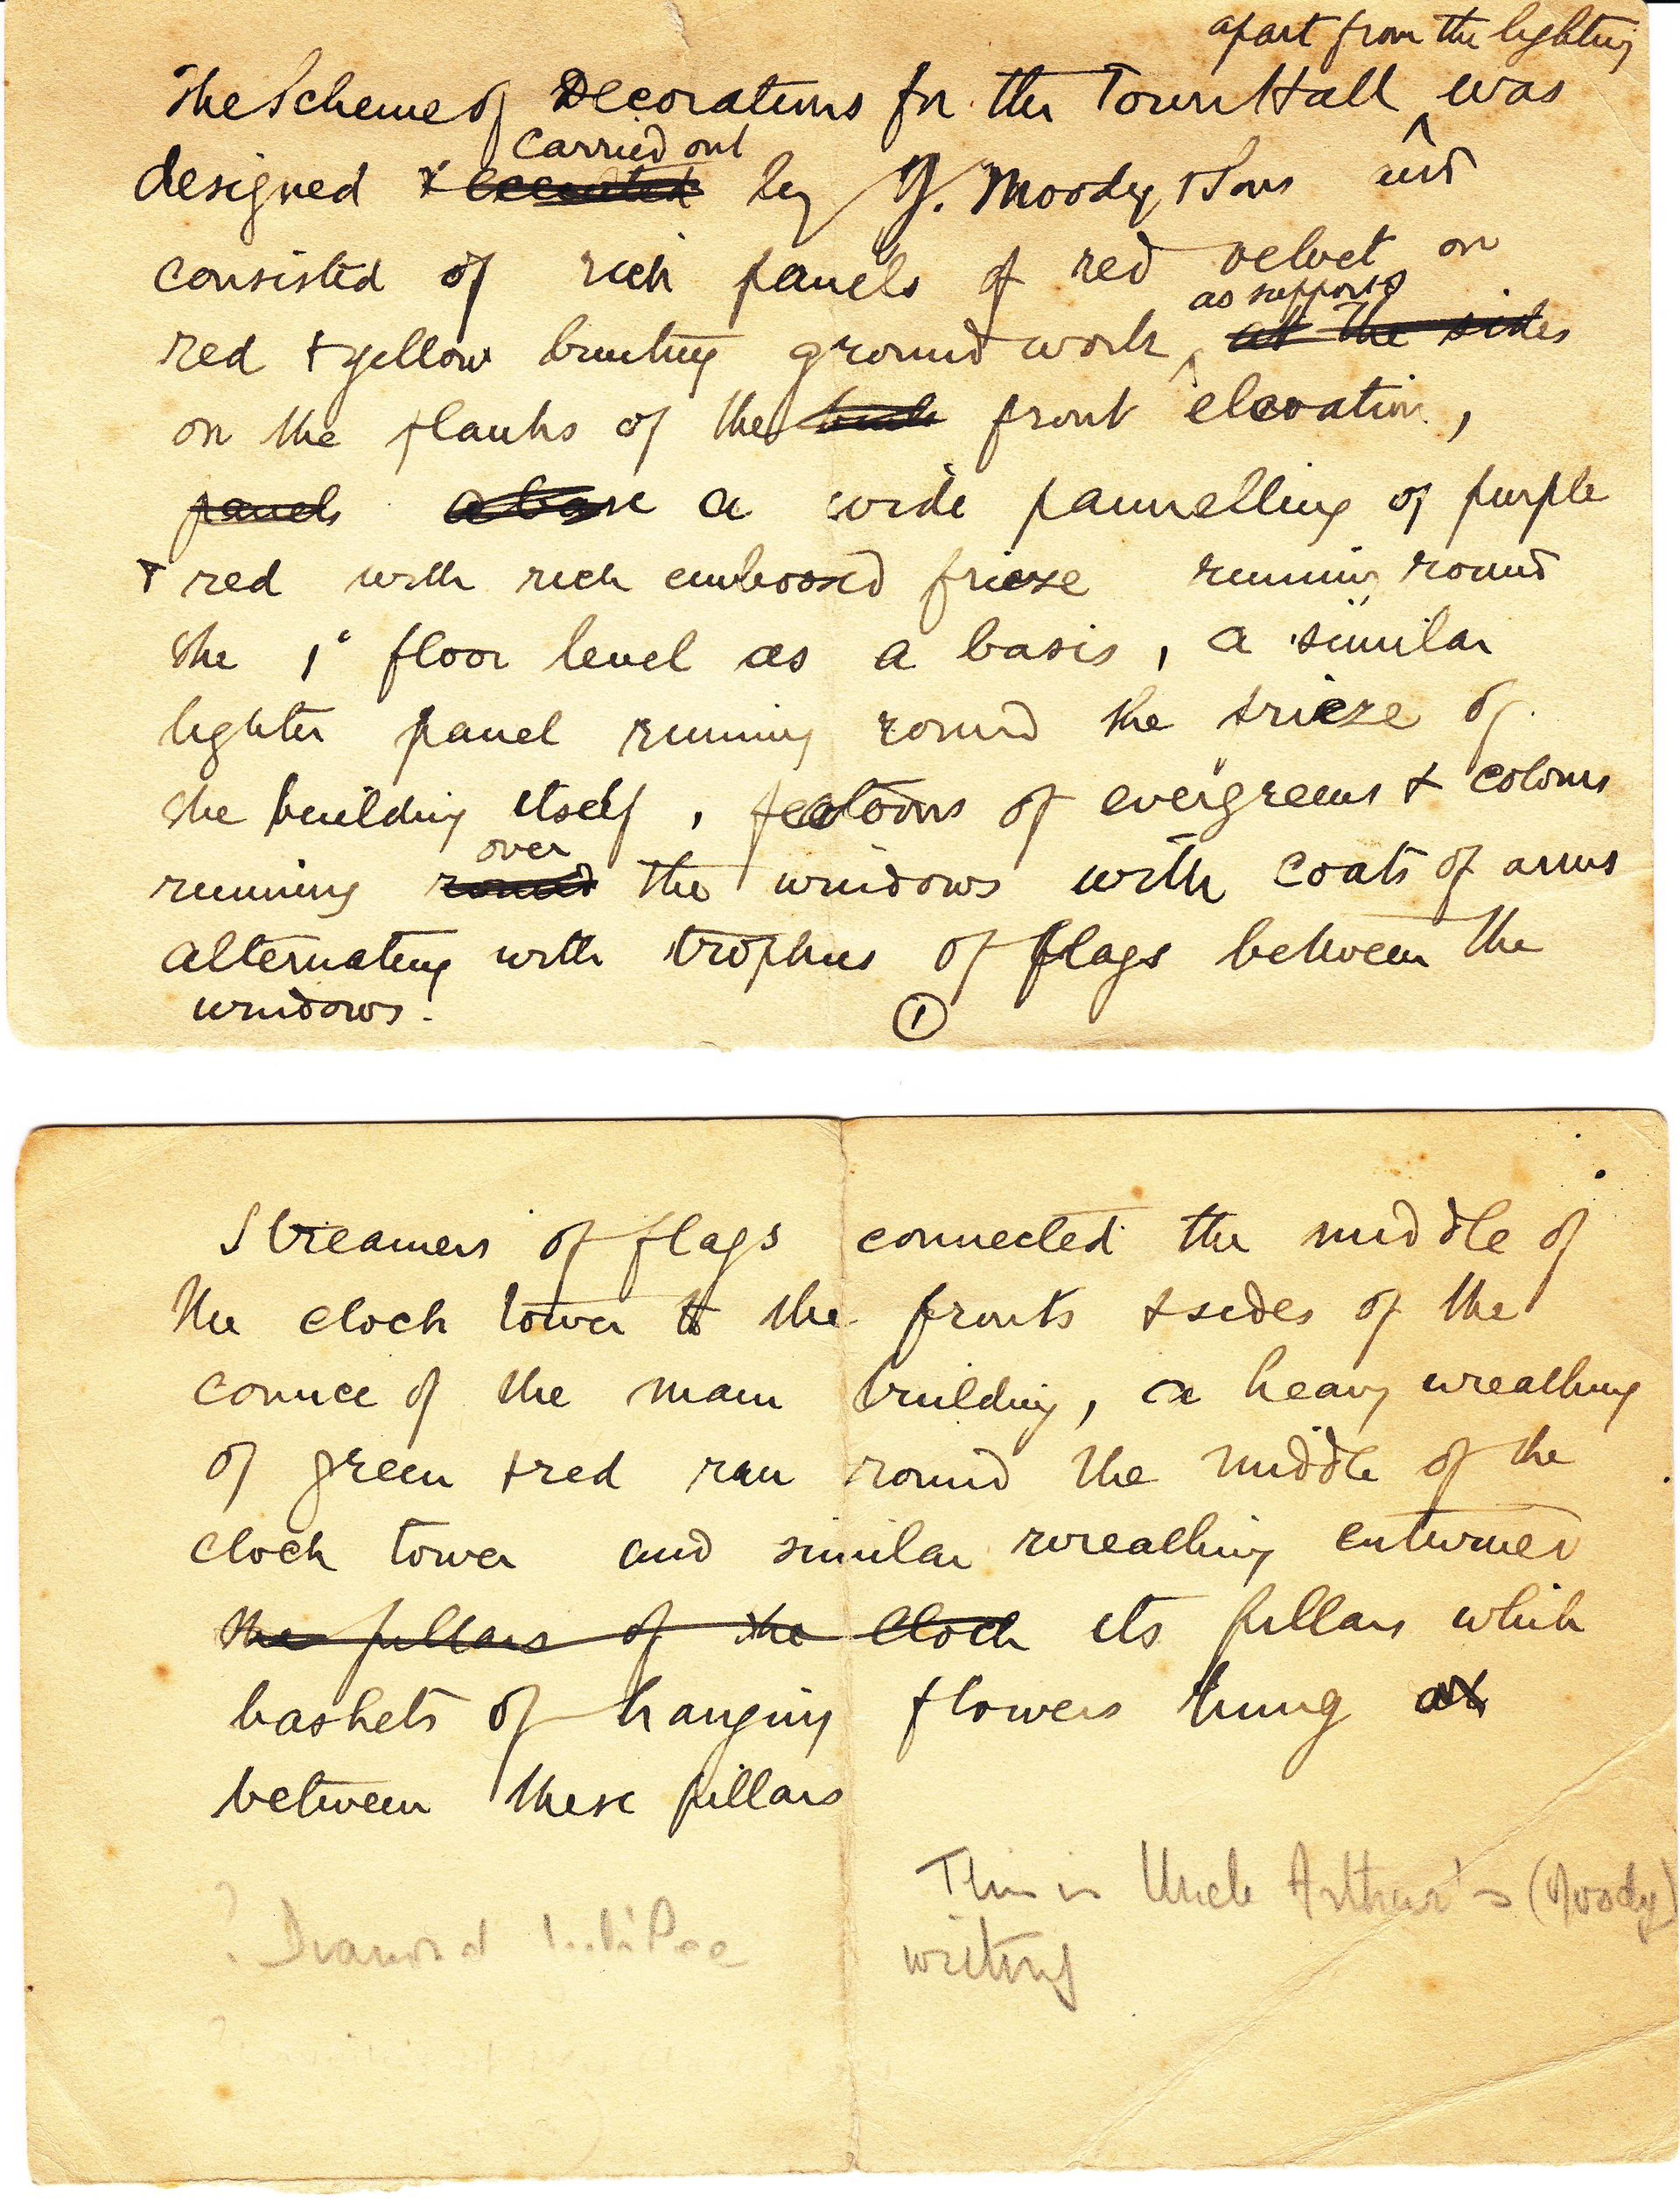 apart from the lighting
The Scheme of Decorations for the Town Hall ^ was
carried out
designed & executed by G. Moody & Sons and
consisted of rich panels of red velvet on
as supports
red & yellow bunting ground work ^ at the sides
on the flanks of the front elevation,
panels a base a wide pannelling of purple
& red with rich embossed frieze running round
the 1st floor level as a basis, a similar
lighter panel running round the frieze of
the building itself, festoons of evergreens & colours
over
running round the windows with coats of arms
alternating with trophies of flags between the
windows.
1
Streamers of flags connected the middle of
the clock tower to the fronts & sides of the
cornice of the main building, a heavy wreathing
of green & red ran round the middle of the
clock tower and similar wreathing entwined
the pillars of the clock its pillars which
baskets of hanging flowers hung
between these pillars
This is Uncle Arthur's (Moody)
writing
? Diamond Jubilee